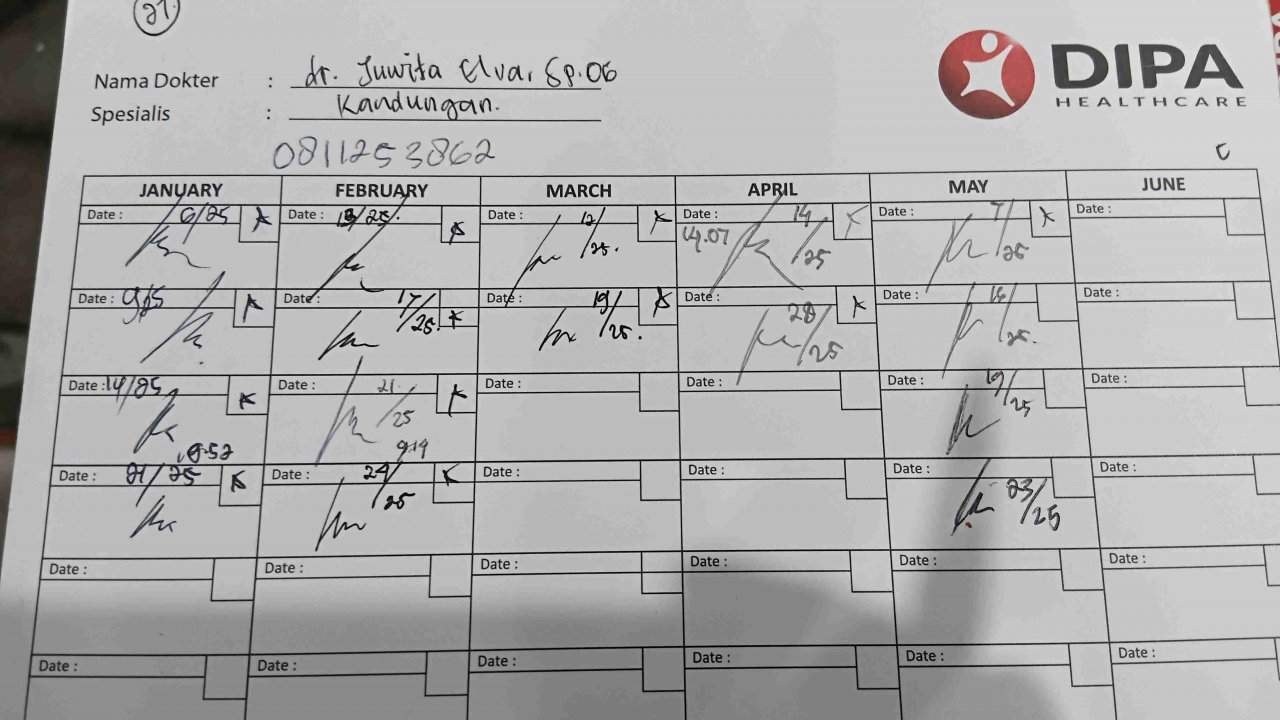 27.
Nama Dokter : dr. Juwita Elva, Sp.OG
Spesialis : Kandungan.
DIPA
HEALTHCARE
0811253862
C
JANUARY FEBRUARY MARCH APRIL MAY JUNE
Date : 6/25 Date : 13/25. Date : 12/25. Date : 14/25 Date : 7/25 Date :
14.07
Date : 9/25 Date : 17/25. Date : 19/25. Date : 28/25 Date : 16/25. Date :
Date : 14/25 Date : 21/25 Date : Date : Date : 19/25 Date :
9.52 9.19
Date : 21/25 Date : 24/25 Date : Date : Date : 23/25 Date :
Date : Date : Date : Date : Date : Date :
Date : Date : Date : Date : Date : Date :